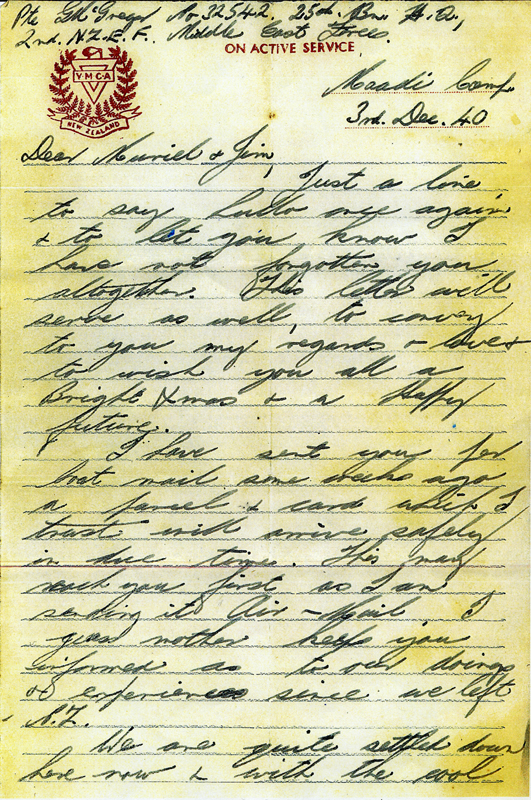 Pte G McGregor No 32542. 25th. Bn. H.Q.,
2nd. N.Z.E.F. Middle East Forces.
ON ACTIVE SERVICE
Y·M·C·A
NEW ZEALAND
Maadi Camp.
3rd. Dec. 40
Dear Muriel & Jim,
Just a line
to say hullo once again
& to let you know I
have not forgotten you
altogether. This letter will
serve as well, to convey
to you my regards & love &
to wish you all a
Bright Xmas & a Happy
future.
I have sent you per
boat mail some weeks ago
a parcel & card which I
trust will arrive safely
in due time. This may
reach you first as I am
sending it Air-Mail. I
guess mother keeps you
informed as to our doings
& experiences since we left
N.Z.
We are quite settled down
here now & with the cool